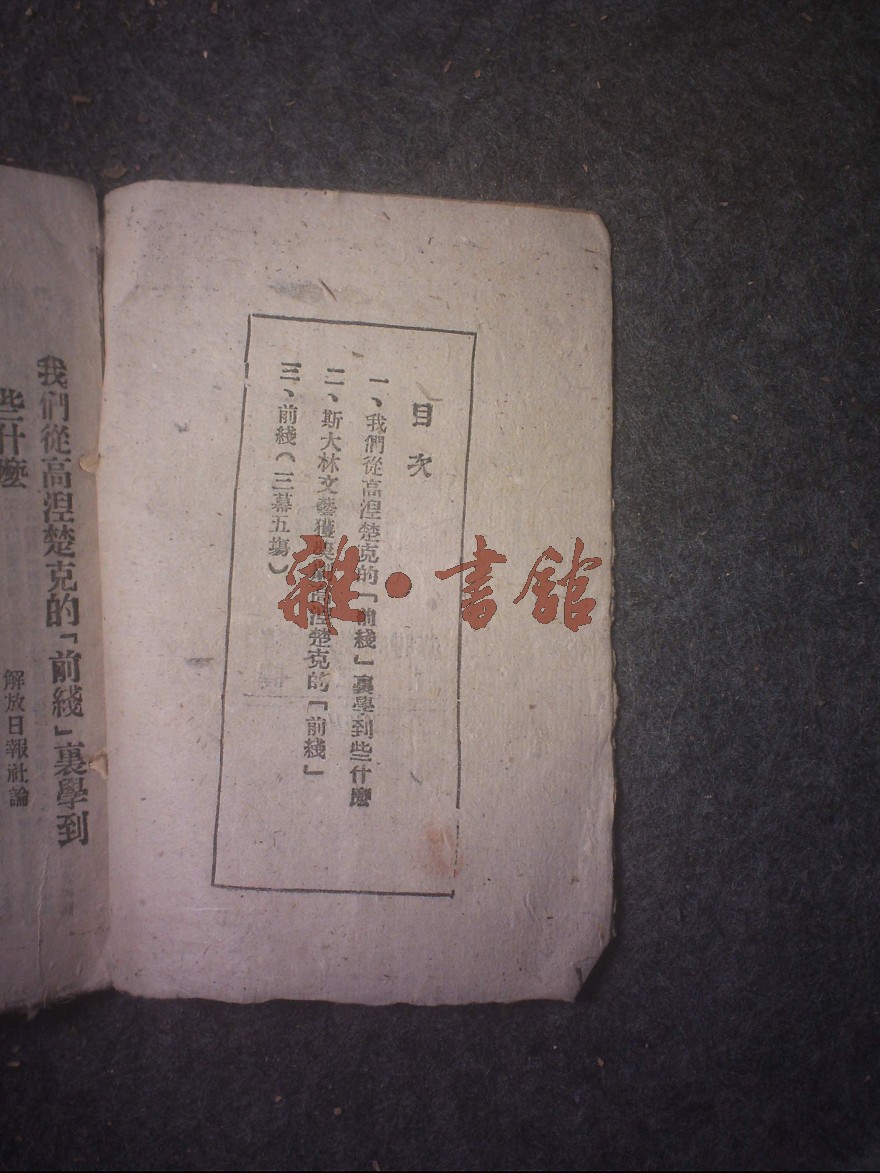 目次
一、我們從高涅楚克的「前綫」裏學到些什麼
二、斯大林文藝獲獎劇高涅楚克的「前綫」
三、前綫(三幕五場)
我們從高涅楚克的「前綫」裏學到
些什麼
解放日報社論
雜·書館